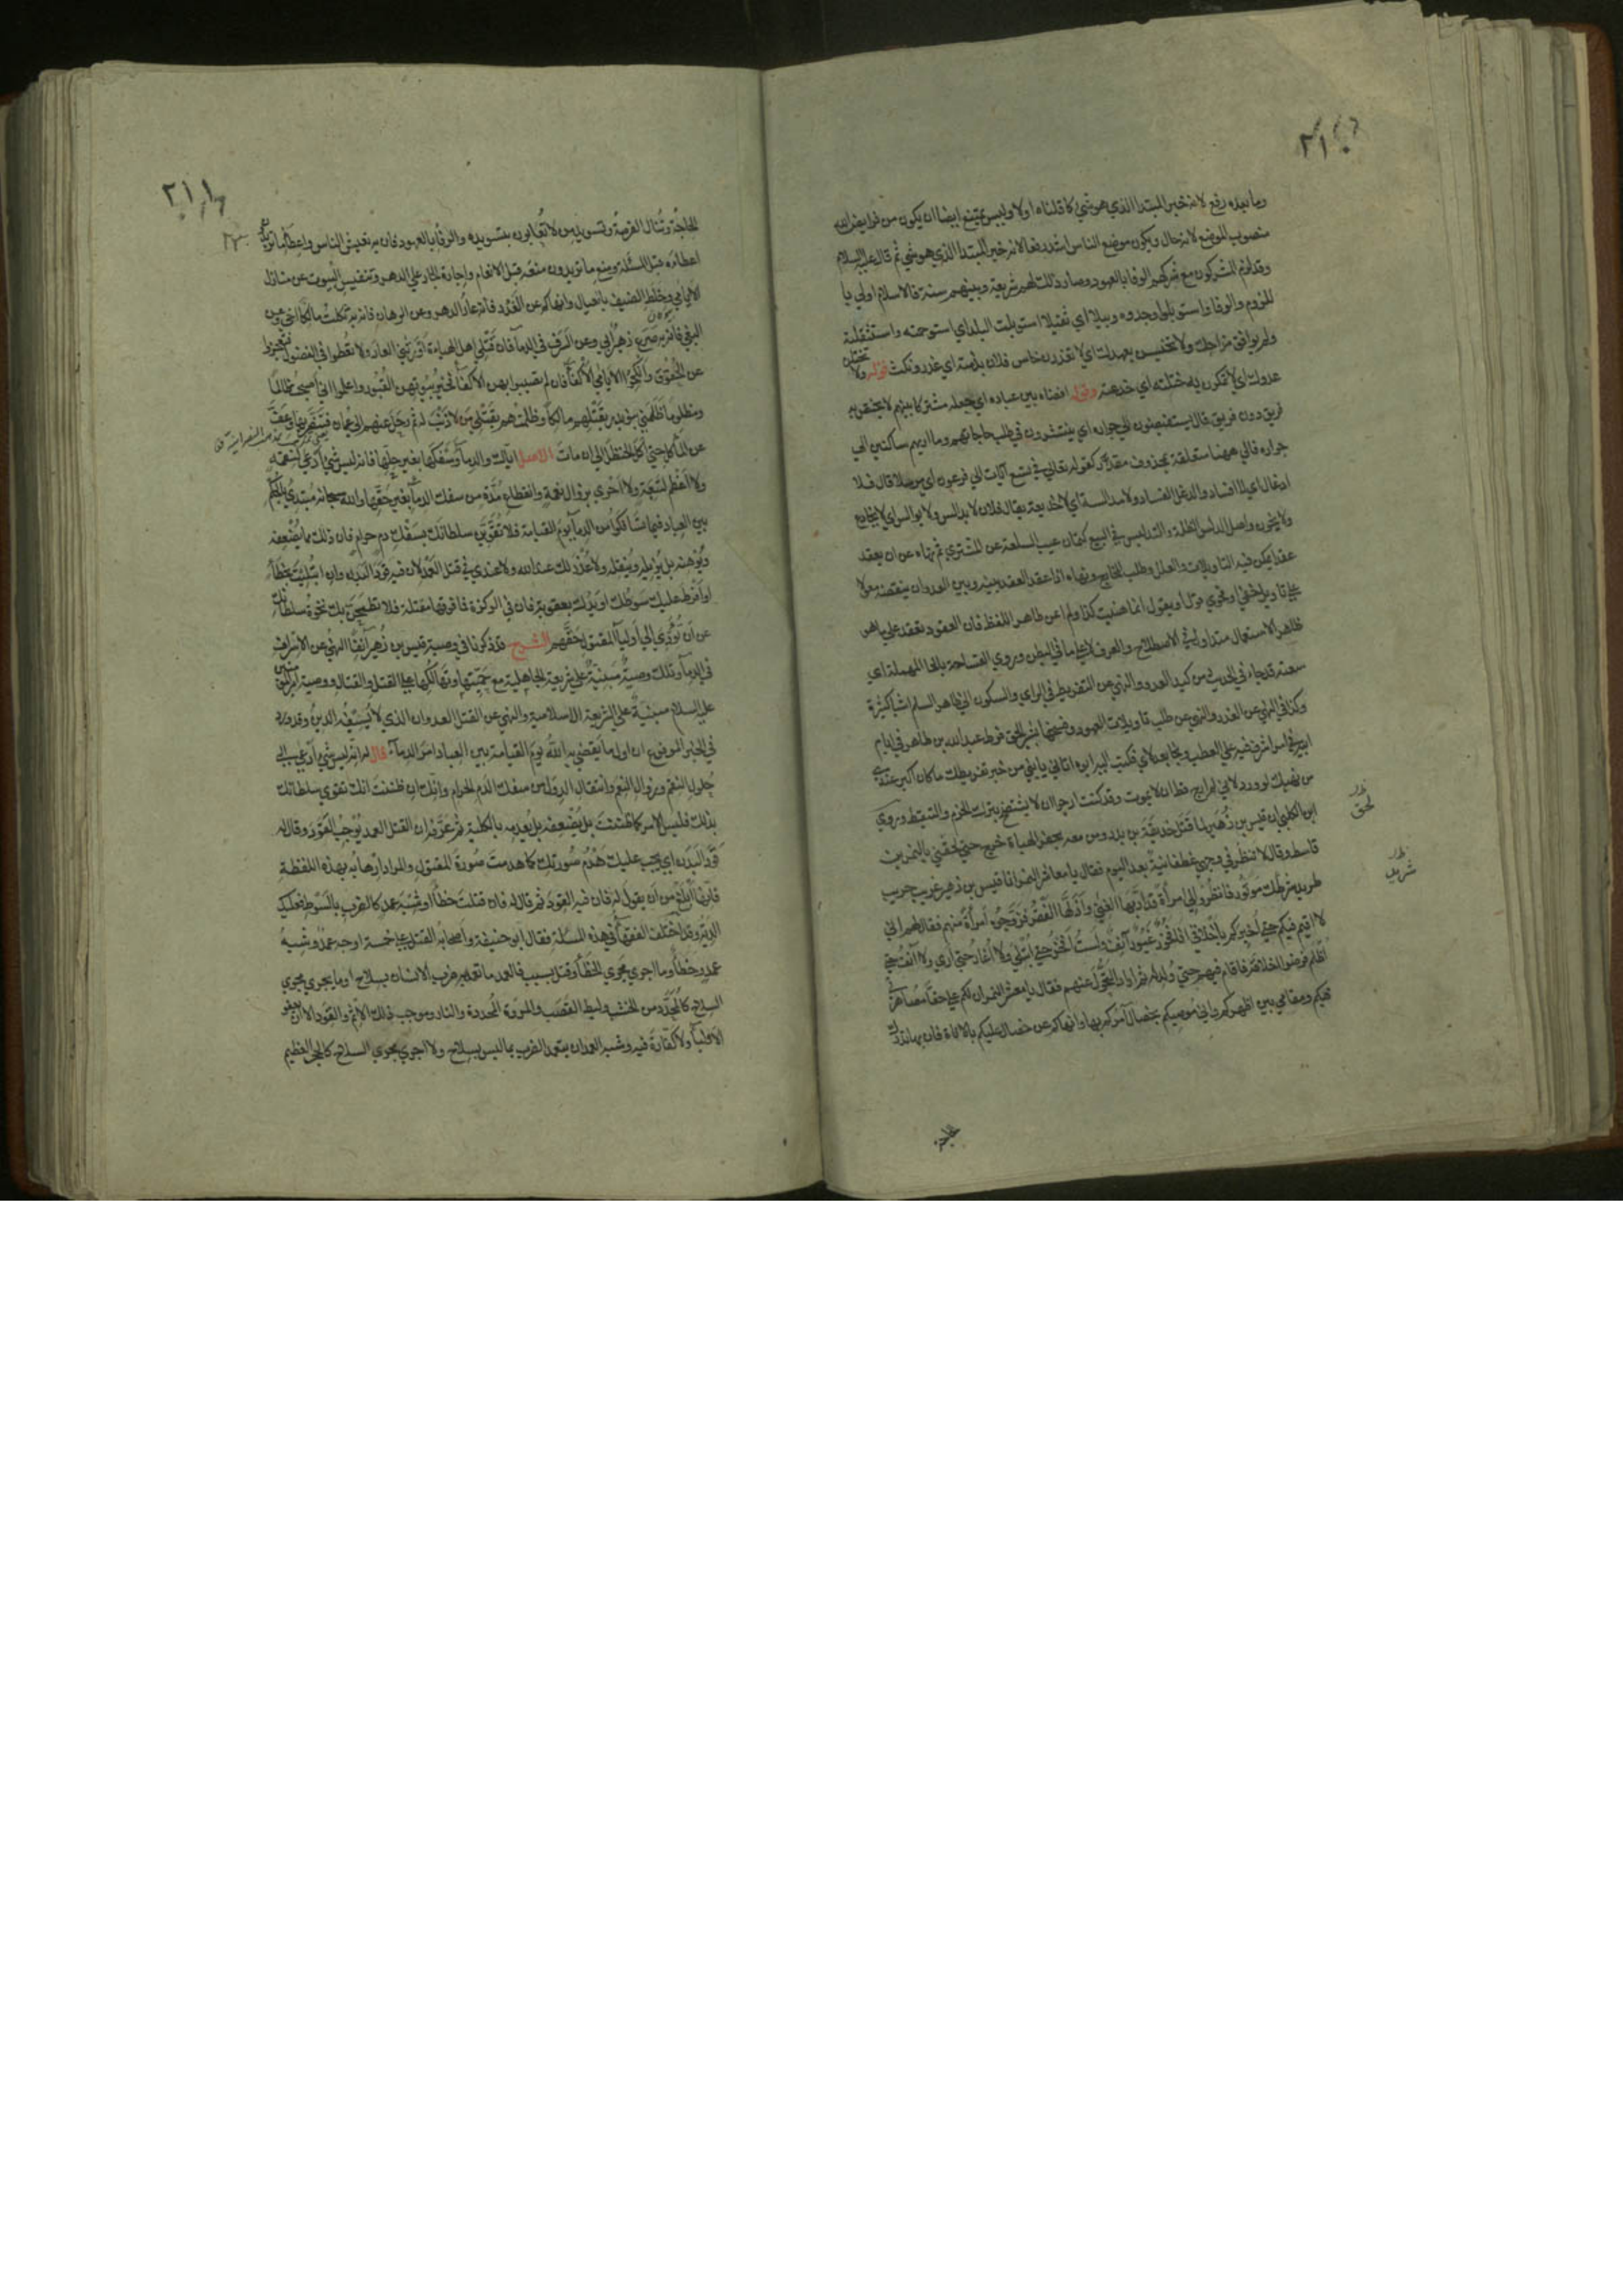 ٢١٠
وما بعده رفع لانه خبر المبتدا الذي هو شيء كما قلناه اولا وليس يمتنع ايضا ان يكون من فرايض الله
منصوب الموضع لانه حال ويكون موضع الناس اشد رفعا لانه خبر المبتدا الذي هو شيء ثم قال عليه السلام
وقد لزم المشركون مع شركهم الوفا بالعهود وصار ذلك لهم شريعة وبينهم سنة فالاسلام اولى با
للزوم والوفا واستوبلوا وجدوه وبيلا اي ثقيلا استوبلت البلد اي استوخمته واستثقلته
ولم يوافق مزاجك ولا تخيسن بعهدك اي لا تغدرن خاس فلان بذمته اي غدر ونكث قوله ولا تختلن
عدوك اي لا تمكرن به ختلته اي خدعته وقوله افضاه بين عباده اي جعله مشتركا بينهم لا يختص به
فريق دون فريق قال يستفيضون الى جواره اي ينتشرون في طلب حاجاتهم وماربهم ساكنين الى
جواره فالى ههنا متعلقة بمحذوف مقدر كقوله تعالى في تسع آيات الى فرعون اي مرسلا قال فلا
ادغال اي لا افساد والدغل الفساد ولا مدالسة اي لا خديعة يقال فلان لا يدالس ولا يوالس اي لا يخادع
ولا يخون واصل الدلس الظلمة والتدليس في البيع كتمان عيب السلعة عن المشتري ثم نهاه عن ان يعقد
عقدا يمكن فيه التاويلات والعلل وطلب المخارج ونهاه اذا عقد العقد بينه وبين العدو ان ينقضه معولا
على تاويل خفي او فحوى قول او يقول انما عنيت كذا ولم اعن ظاهر اللفظ فان العقود تعقد على ما هو
ظاهر الاستعمال متداول في الاصطلاح والعرف لا على ما في الباطن وروي انفساحه بالحا المهملة اي
سعته قد جاء في الحديث من كيد العدو والنهي عن التفريط في الراي والسكون الى ظاهر السلم اشيا كثيرة
وكذا في النهي عن الغدر والنهي عن طلب تاويلات العهود وفسخها بغير الحق فرط عبد الله بن طاهر في ايام
ابيه في امر اشرف فيه على العطب ونجا بعد لاي فكتب اليه ابوه اتاني يا بني من خبر تفريطك ما كان اكبر عندي
من نعيك لو ورد لاني لم ارج قط ان لا تموت وقد كنت ارجو ان لا تفتضح بترك الحزم والتيقظ وروى
ابن الكلبي ان قيس بن زهير لما قتل حذيفة بن بدر ومن معه بجفر الهباءة خرج حتى لحق بني بالنمر بن
قاسط وقال لا تنظر في وجهي غطفانية بعد اليوم فقال يا معاشر النمر انا قيس بن زهير غريب حريب
طريد شريد موتور فانظروا لي امرأة قد ادبها الغنى واذلها الفقر فزوجوه امرأة منهم فقال لهم اني
لا اقيم فيكم حتى أخبركم باخلاقي انا فخور غيور آنف ولست افخر حتى ابتلى ولا أغار حتى ارى ولا آنف حتى
أظلم فرضوا اخلاقه فاقام فيهم حتى ولد له ثم اراد التحول عنهم فقال يا معشر النمر ان لكم علي حقا بمصاهرتي
فيكم ومقامي بين اظهركم واني موصيكم بخصال آمركم بها وانهاكم عن خصال عليكم بالاناة فان بها تدرك
لحق
الحاجة
٢١١
الحاجة وتنال الفرصة وتسويد من لا تعابون بتسويده والوفا بالعهود فان به تعيش الناس واعطاء ما تريدون
اعطاءه قبل المسئلة ومنع ما تريدون منعه قبل الانعام واجارة الجار على الدهر وتنفيس البيوت عن منازل
الايامى وخلط الضيف بالعيال وانهاكم عن الغدر فانه عار الدهر وعن الرهان فان به ثكلت مالكا اخي وعن
البغي فان به صرع زهير ابي وعن السرف في الدماء فان قتلي اهل الهباءة اورثني العار ولا تعطوا في الفضول فتعجزوا
عن الحقوق وانكحوا الايامى الاكفاء فان لم تصيبوا بهن الاكفاء فخير بيوتهن القبور واعلموا اني اصبحت ظالما
ومظلوما ظلمني بنو بدر بقتلهم مالكا وظلمتهم بقتلي من لا ذنب له ثم رحل عنهم الى عمان فتنصر بها وعف
عن المآكل حتى اكل الحنظل الى ان مات الاصل اياك والدماء وسفكها بغير حلها فانه ليس شيء ادعى لنقمة
ولا اعظم لتبعة ولا احرى بزوال نعمة وانقطاع مدة من سفك الدماء بغير حقها والله سبحانه مبتدئ بالحكم
بين العباد فيما تسافكوا من الدماء يوم القيامة فلا تقوين سلطانك بسفك دم حرام فان ذلك مما يضعفه
ويوهنه بل يزيله وينقله ولا عذر لك عند الله ولا عندي في قتل العمد لان فيه قود البدن وان ابتليت بخطأ
او افرط عليك سوطك او يدك بعقوبة فان في الوكزة فما فوقها مقتلة فلا تطمحن بك نخوة سلطانك
عن ان تؤدي الى اولياء المقتول حقهم الشرح قد ذكرنا في وصية قيس بن زهير آنفا النهي عن الاسراف
في الدماء وتلك وصية مبنية على شريعة الجاهلية مع حميتها وتهالكها على القتل والقتال ووصية امير المؤمنين
عليه السلام مبنية على الشريعة الاسلامية والنهي عن القتل العدوان الذي لا يسيغه الدين وقد ورد
في الخبر المرفوع ان اول ما يقضي به الله يوم القيامة بين العباد امر الدماء قال انه ليس شيء ادعى الى
حلول النقم وزوال النعم وانتقال الدول من سفك الدم الحرام وانك ان ظننت انك تقوي سلطانك
بذلك فليس الامر كما ظننت بل يضعفه بل يعدمه بالكلية ثم عرفه ان القتل العمد يوجب القود وقال له
قود البدن اي يجب عليك هدم صورتك كما هدمت صورة المقتول والمراد ارهابه بهذه اللفظة
فانها ابلغ من ان يقول له فان فيه القود ثم قال له فان قتلت خطأ او شبه عمد كالضرب بالسوط فعليك
الدية وقد اختلف الفقهاء في هذه المسئلة فقال ابو حنيفة واصحابه القتل على خمسة اوجه عمد وشبيه
عمد وخطأ وما اجري مجرى الخطأ وقتل بسبب فالعمد ما تعمد به ضرب الانسان بسلاح او ما يجري مجرى
السلاح كالمحدد من الخشب وليط القصب والمروة المحددة والنار وموجب ذلك الاثم والقود الا ان يعفو
الاولياء ولا كفارة فيه وشبه العمد ان يتعمد الضرب بما ليس بسلاح ولا اجري مجرى السلاح كالحجر العظيم